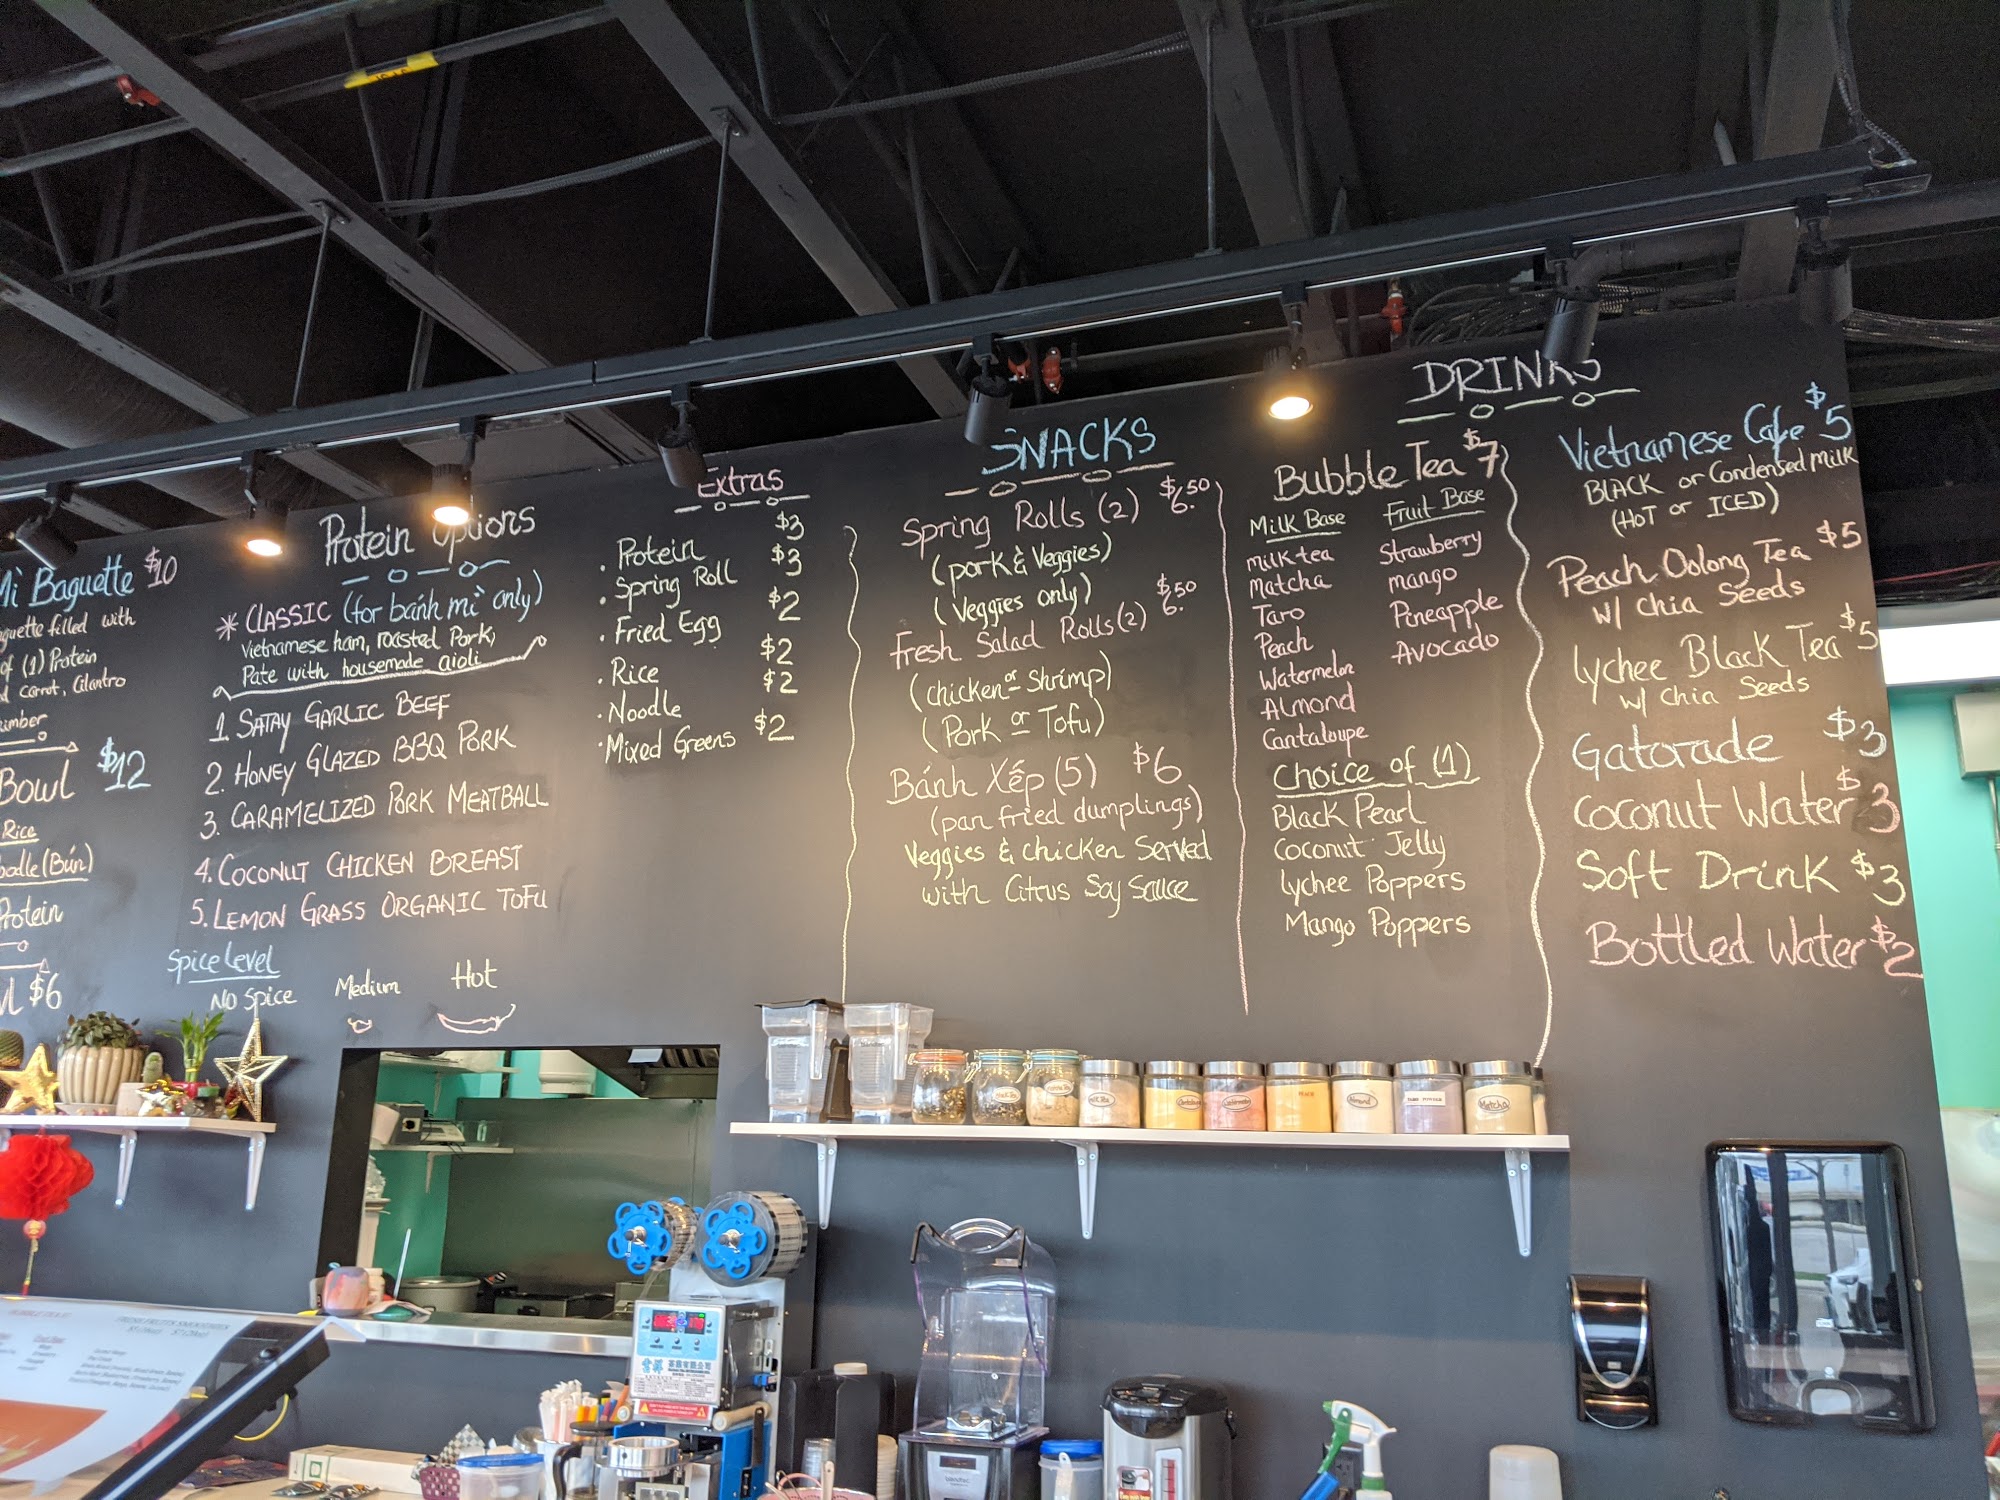 Mì Baguette $10
guette filled with
of (1) Protein
d carrot, Cilantro
umber
Bowl $12
Rice
oodle (Bún)
Protein
wl $6
Protein Options
* CLASSIC (for bánh mì only)
Vietnamese ham, roasted Pork,
Pate with housemade aioli
1. SATAY GARLIC BEEF
2. HONEY GLAZED BBQ PORK
3. CARAMELIZED PORK MEATBALL
4. COCONUT CHICKEN BREAST
5. LEMON GRASS ORGANIC TOFU
Spice Level
No Spice Medium Hot
Extras
. Protein $3
. Spring Roll $3
. Fried Egg $2
. Rice $2
. Noodle $2
. Mixed Greens $2
SNACKS
Spring Rolls (2) $6.50
(pork & Veggies)
(Veggies only)
Fresh Salad Rolls (2) $6.50
(chicken or Shrimp)
(Pork or Tofu)
Bánh Xếp (5) $6
(pan fried dumplings)
Veggies & chicken Served
with Citrus Soy Sauce
DRINKS
Bubble Tea $7
Milk Base
milk tea
Matcha
Taro
Peach
Watermelon
Almond
Cantaloupe
Fruit Base
Strawberry
mango
Pineapple
Avocado
Choice of (1)
Black Pearl
Coconut Jelly
Lychee Poppers
Mango Poppers
Vietnamese Cafe $5
BLACK or Condensed Milk
(HOT or ICED)
Peach Oolong Tea $5
w/ Chia Seeds
Lychee Black Tea $5
w/ Chia Seeds
Gatorade $3
Coconut Water $3
Soft Drink $3
Bottled Water $2
PEACH
Almond
TARO POWDER
Matcha